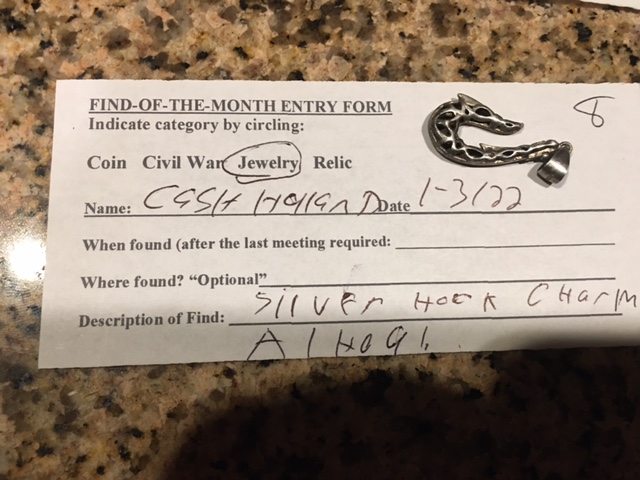 FIND-OF-THE-MONTH ENTRY FORM
8
Indicate category by circling:
Coin Civil War Jewelry Relic
Name: CASH HollAnD Date 1-3/22
When found (after the last meeting required:
Where found? “Optional”
Description of Find: SIlVEr HooK CHArM